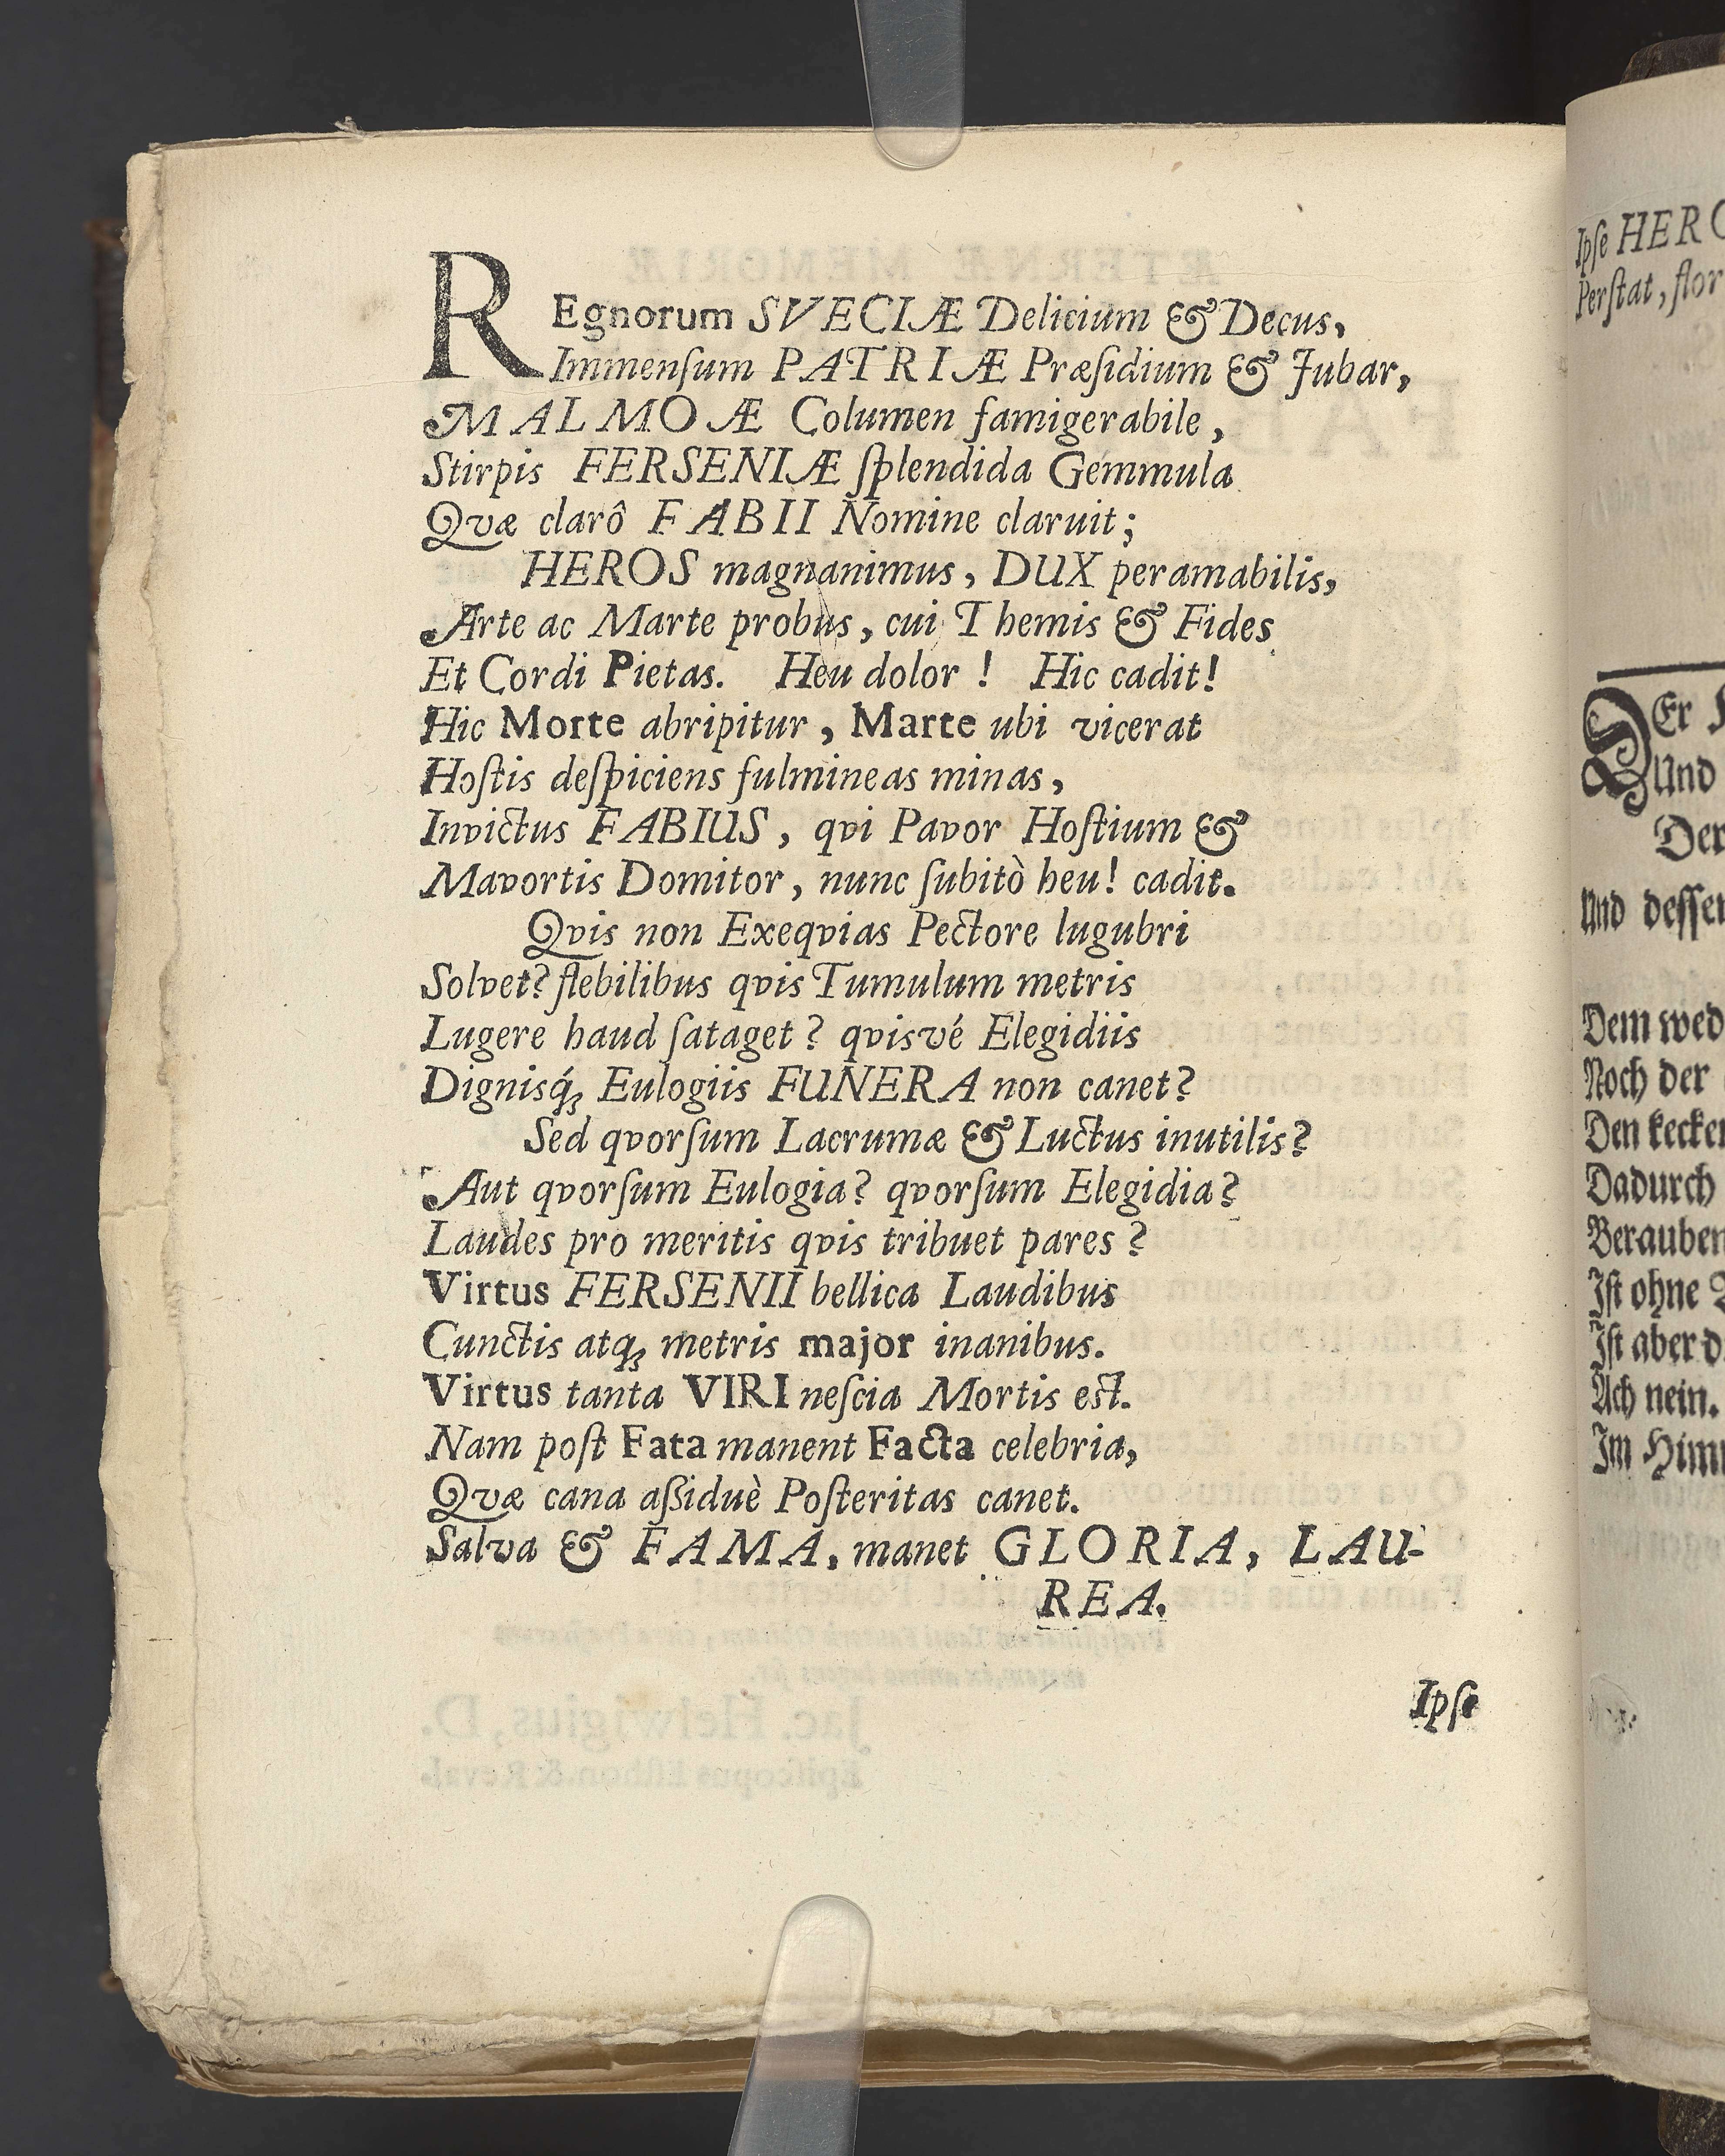 REgnorum SVECIÆ Delicium & Decus,
Immenſum PATRIÆ Præſidium & Jubar,
MALMOÆ Columen famigerabile,
Stirpis FERSENIÆ ſplendida Gemmula
Qvæ clarô FABII Nomine claruit;
HEROS magnanimus, DUX peramabilis,
Arte ac Marte probus, cui Themis & Fides
Et Cordi Pietas. Heu dolor! Hic cadit!
Hic Morte abripitur, Marte ubi vicerat
Hoſtis deſpiciens fulmineas minas,
Invictus FABIUS, qvi Pavor Hoſtium &
Mavortis Domitor, nunc ſubitò heu! cadit.
Qvis non Exeqvias Pectore lugubri
Solvet? flebilibus qvis Tumulum metris
Lugere haud ſataget? qvisvé Elegidiis
Dignisq́; Eulogiis FUNERA non canet?
Sed qvorſum Lacrumæ & Luctus inutilis?
Aut qvorſum Eulogia? qvorſum Elegidia?
Laudes pro meritis qvis tribuet pares?
Virtus FERSENII bellica Laudibus
Cunctis atq; metris major inanibus.
Virtus tanta VIRI neſcia Mortis eſt.
Nam poſt Fata manent Facta celebria,
Qvæ cana aßiduè Poſteritas canet.
Salva & FAMA, manet GLORIA, LAU-
REA.
Ipſe
Ipſe
Perſtat,
Er
Und
Der
Und
Dem
Noch der
Den
Dadurch
Iſt ohne
Iſt aber
Ach nein.
Im